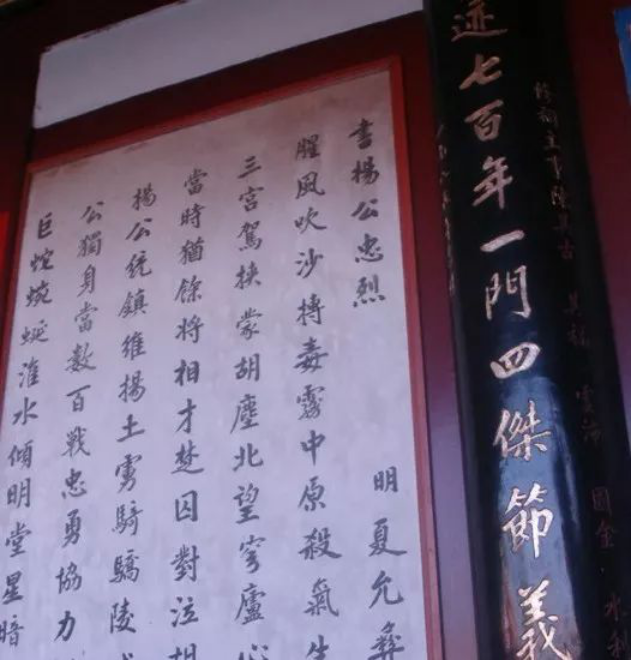 迹七百年一門四傑節義
書楊公忠烈
明夏允彝
腥風吹沙摶毒霧中原殺氣生
三宮駕挾蒙胡塵北望穹廬心
當時猶餘將相才楚囚對泣胡
楊公統鎮維揚土雳騎驕陵
公獨身當數百戰忠勇協力
巨蛇蜿蜒淮水傾明堂星暗